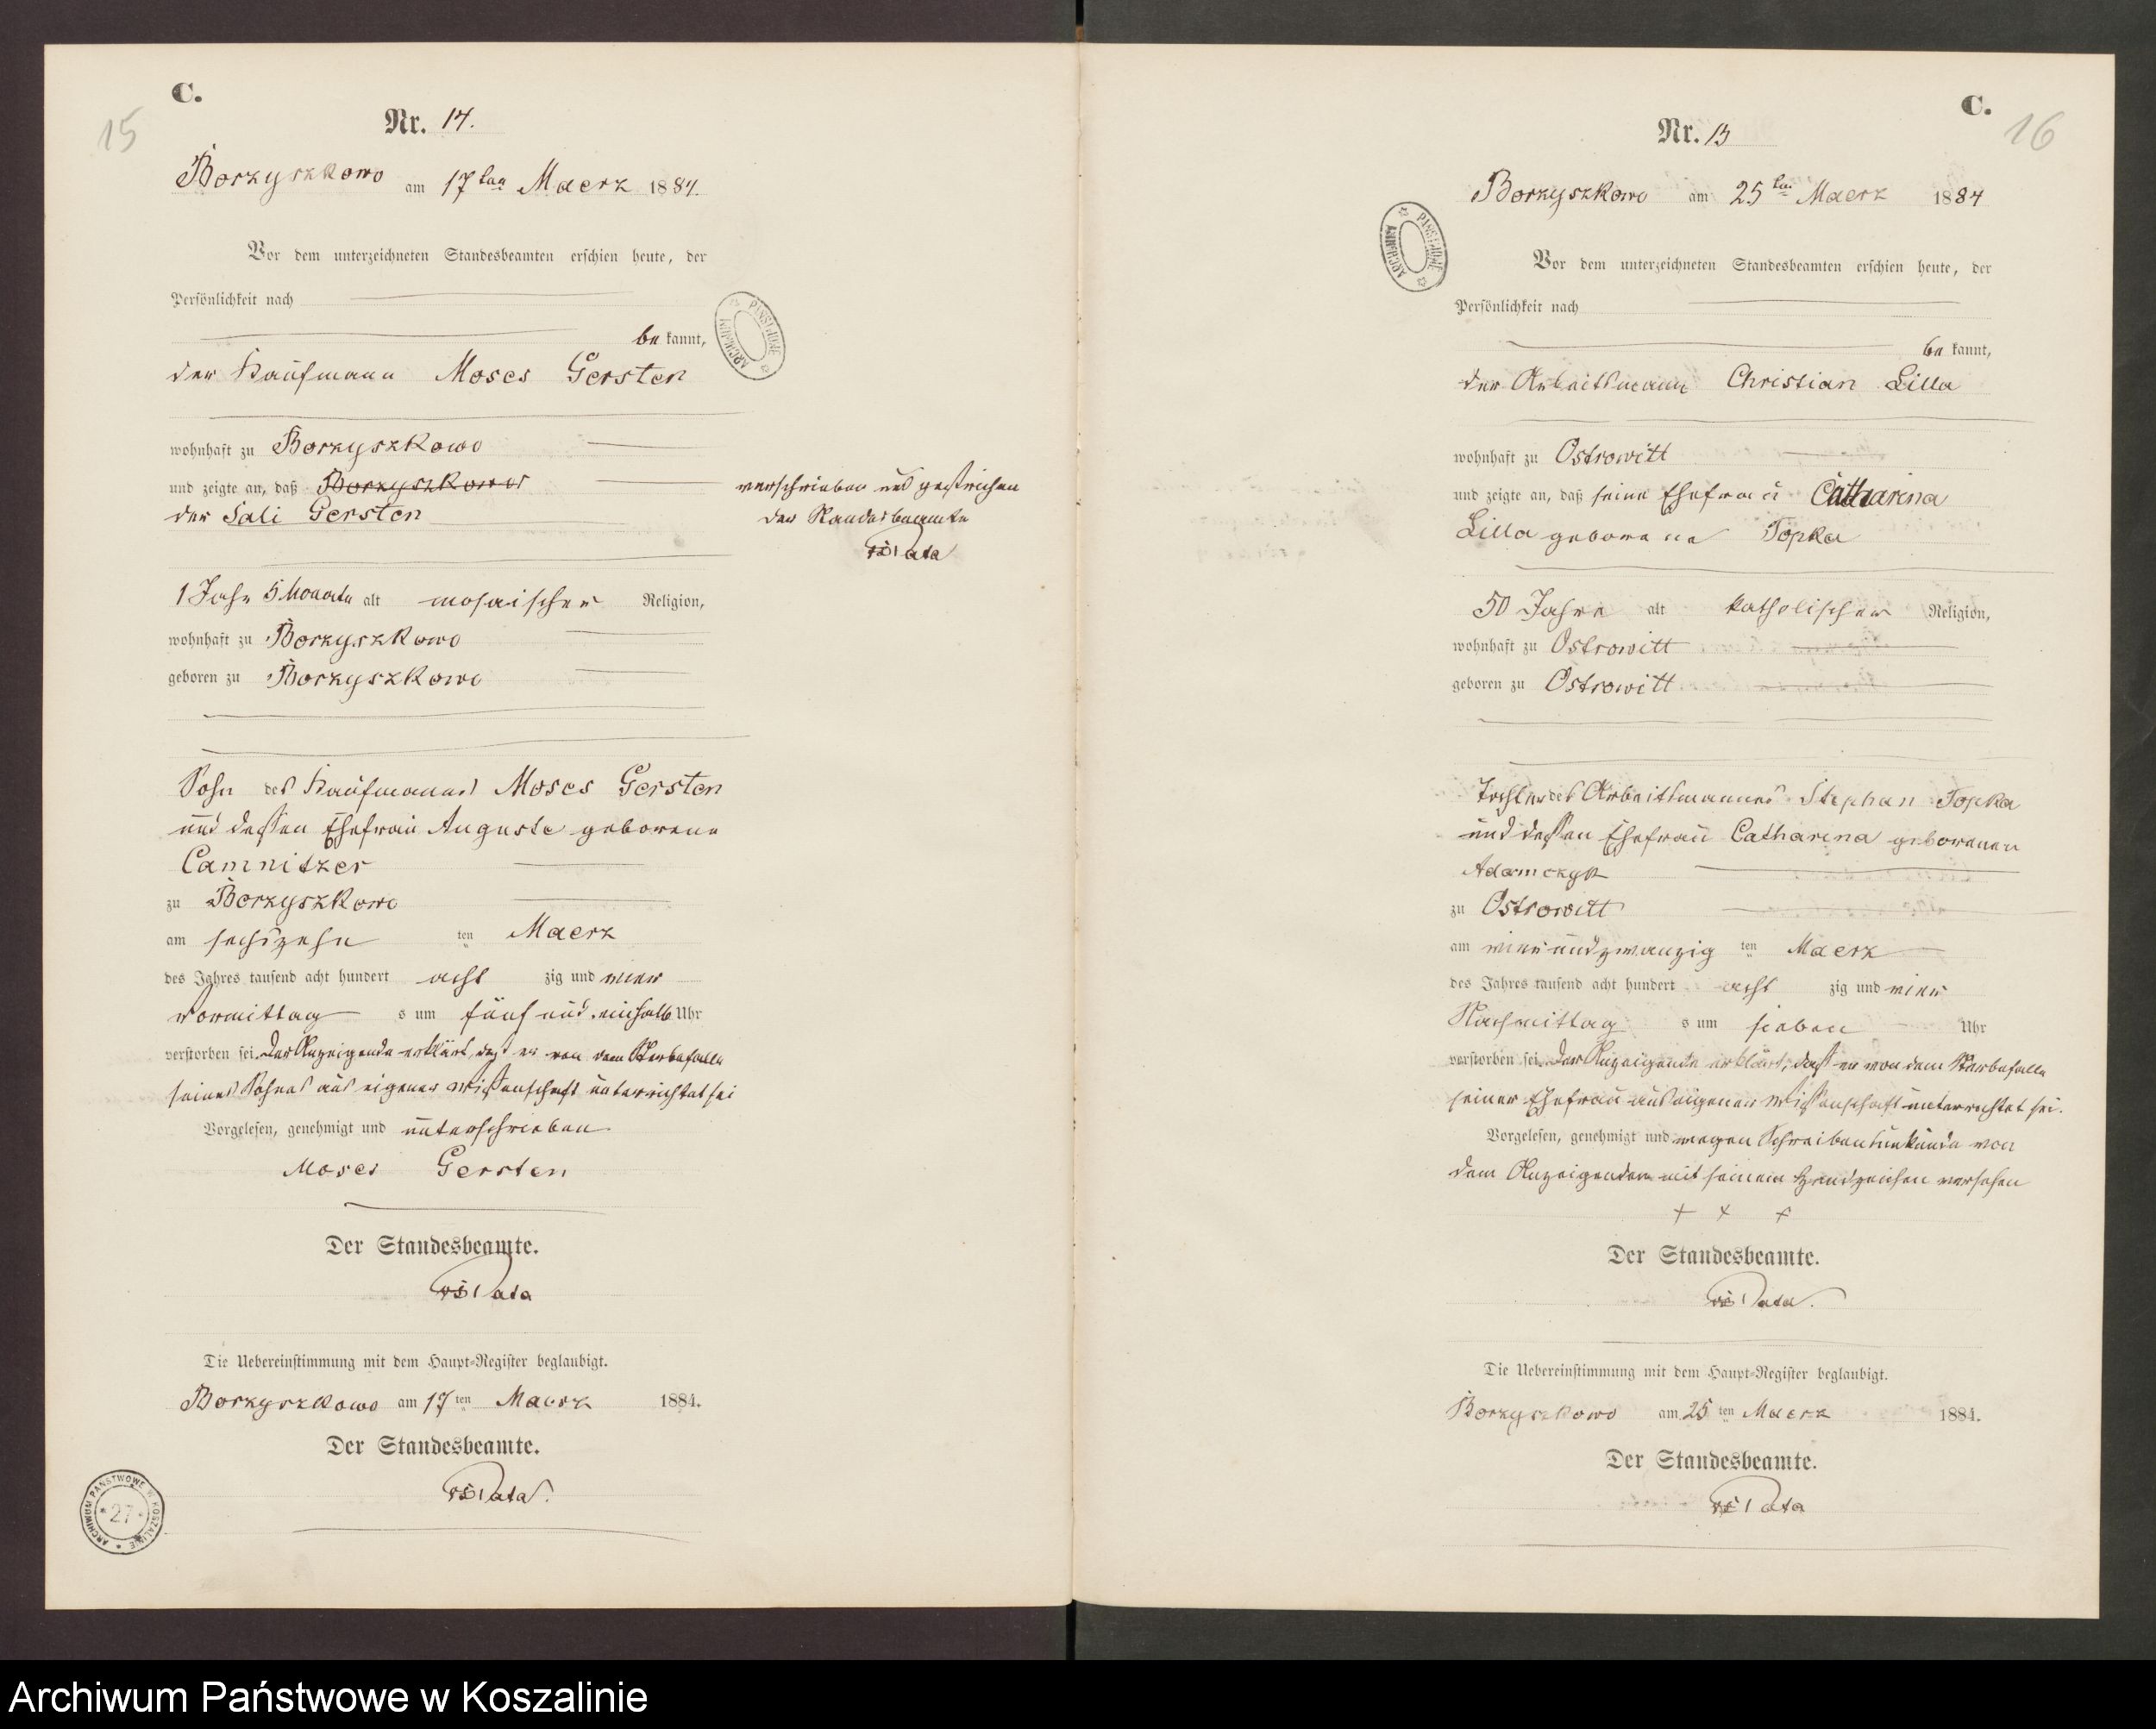 15
C.
Nr. 14.
Borzyszkowo am 17ten Maerz 1884.
Vor dem unterzeichneten Standesbeamten erschien heute, der
Persönlichkeit nach
be kannt,
der Kaufmann Moses Gersten
wohnhaft zu Borzyszkowo
und zeigte an, daß Borzyszkowo
der Sali Gersten
verschrieben und gestrichen
der Standesbeamte
Pata
1 Jahr 5 Monate alt mosaischer Religion,
wohnhaft zu Borzyszkowo
geboren zu Borzyszkowo
Sohn des Kaufmannes Moses Gersten
und dessen Ehefrau Auguste geborene
Camnitzer
zu Borzyszkowo
am sechszehn ten Maerz
des Jahres tausend acht hundert acht zig und vier
Vormittag s um fünf und einhalb Uhr
verstorben sei. Der Anzeigende erklärt, daß er von dem Sterbefalle
seines Sohnes aus eigener Wissenschaft unterrichtet sei
Vorgelesen, genehmigt und unterschrieben
Moses Gersten
Der Standesbeamte.
Pata
Die Uebereinstimmung mit dem Haupt-Register beglaubigt.
Borzyszkowo am 17 ten Maerz 1884.
Der Standesbeamte.
Pata.
ARCHIWUM PAŃSTWOWE W KOSZALINIE
27
ARCHIWUM PAŃSTWOWE
C.
16
Nr. 15
Borzyszkowo am 25ten Maerz 1884
Vor dem unterzeichneten Standesbeamten erschien heute, der
Persönlichkeit nach
be kannt,
der Arbeitsmann Christian Lilla
wohnhaft zu Ostrowitt
und zeigte an, daß seine Ehefrau Catharina
Lilla geborene Topka
50 Jahre alt katholischer Religion,
wohnhaft zu Ostrowitt
geboren zu Ostrowitt
Tochter des Arbeitsmannes Stephan Topka
und dessen Ehefrau Catharina geborenen
Adamczyk
zu Ostrowitt
am vierundzwanzig ten Maerz
des Jahres tausend acht hundert acht zig und vier
Nachmittag s um sieben Uhr
verstorben sei. Der Anzeigende erklärt, daß er von dem Sterbefalle
seiner Ehefrau aus eigener Wissenschaft unterrichtet sei.
Vorgelesen, genehmigt und wegen Schreibensunkunde von
dem Anzeigenden mit seinem Handzeichen versehen
+ + +
Der Standesbeamte.
Pata.
Die Uebereinstimmung mit dem Haupt-Register beglaubigt.
Borzyszkowo am 25 ten Maerz 1884.
Der Standesbeamte.
Pata
ARCHIWUM PAŃSTWOWE
Archiwum Państwowe w Koszalinie